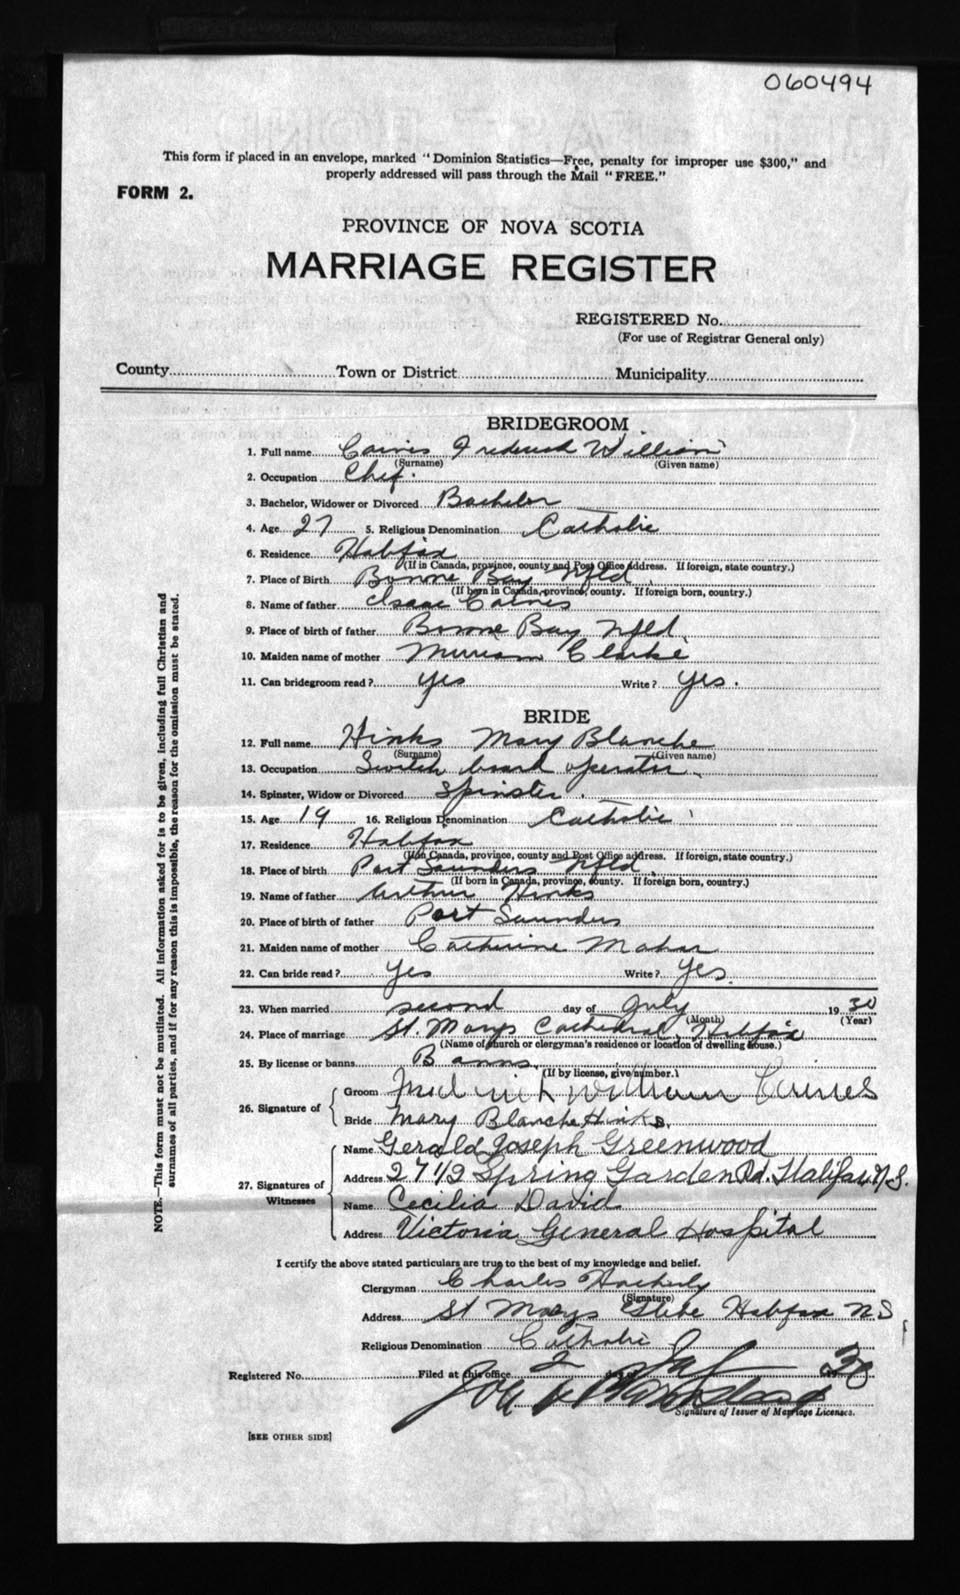 060494
This form if placed in an envelope, marked "Dominion Statistics—Free, penalty for improper use $300," and
properly addressed will pass through the Mail "FREE."
FORM 2.
PROVINCE OF NOVA SCOTIA
MARRIAGE REGISTER
REGISTERED No.
(For use of Registrar General only)
County Town or District Municipality
BRIDEGROOM
1. Full name Caines Frederick William
(Surname) (Given name)
2. Occupation Chef.
3. Bachelor, Widower or Divorced Bachelor
4. Age 27 5. Religious Denomination Catholic
6. Residence Halifax
(If in Canada, province, county and Post Office address. If foreign, state country.)
7. Place of Birth Bonne Bay Nfld.
(If born in Canada, province, county. If foreign born, country.)
8. Name of father Isaac Caines
9. Place of birth of father Bonne Bay Nfld.
10. Maiden name of mother Mirriam Clarke
11. Can bridegroom read? yes Write? yes.
BRIDE
12. Full name Hinks Mary Blanche
(Surname) (Given name)
13. Occupation Switch board operator.
14. Spinster, Widow or Divorced Spinster.
15. Age 19 16. Religious Denomination Catholic
17. Residence Halifax
(If in Canada, province, county and Post Office address. If foreign, state country.)
18. Place of birth Port Saunders Nfld.
(If born in Canada, province, county. If foreign born, country.)
19. Name of father Arthur Hinks
20. Place of birth of father Port Saunders
21. Maiden name of mother Catherine Maher
22. Can bride read? Yes Write? Yes.
23. When married second day of July 1930
(Month) (Year)
24. Place of marriage St. Marys Cathedral, Halifax
(Name of church or clergyman's residence or location of dwelling house.)
25. By license or banns Banns
(If by license, give number.)
26. Signature of Groom Fredrick William Caines
Bride Mary Blanche Hinks.
27. Signatures of Witnesses Name Gerald Joseph Greenwood
Address 27 1/2 Spring Garden Rd. Halifax N.S.
Name Cecilia David
Address Victoria General Hospital
I certify the above stated particulars are true to the best of my knowledge and belief.
Clergyman Charles
(Signature)
Address St Marys Glebe Halifax N S
Religious Denomination Catholic
Registered No. Filed at this office 2 day of Jul 1930
Signature of Issuer of Marriage Licenses.
[SEE OTHER SIDE]
NOTE.—This form must not be mutilated. All information asked for is to be given, including full Christian and
surnames of all parties, and if for any reason this is impossible, the reason for the omission must be stated.